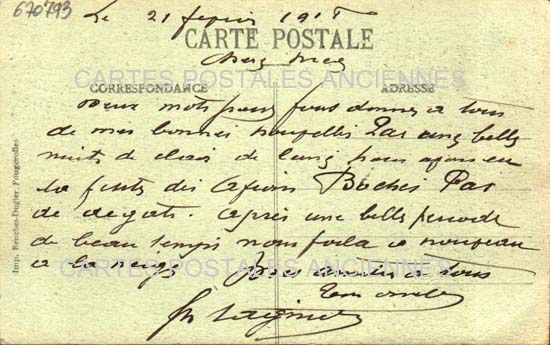 670793
Le 21 fevrier 191
CARTE POSTALE
Cher
CARTES POSTALES ANCIENNES
CORRESPONDANCE ADRESSE
Deux mots pour vous donner a tous
de mes bonnes nouvelles Par une belle
nuit de clair de lune nous avons eu
la visite des Boches Pas
de degats. apres une belle periode
de beau temps nous voila a nouveau
CARTES POSTALES ANCIENNES
a la neige a tous
Imp. Reuchet-Dugier, Fougerolles